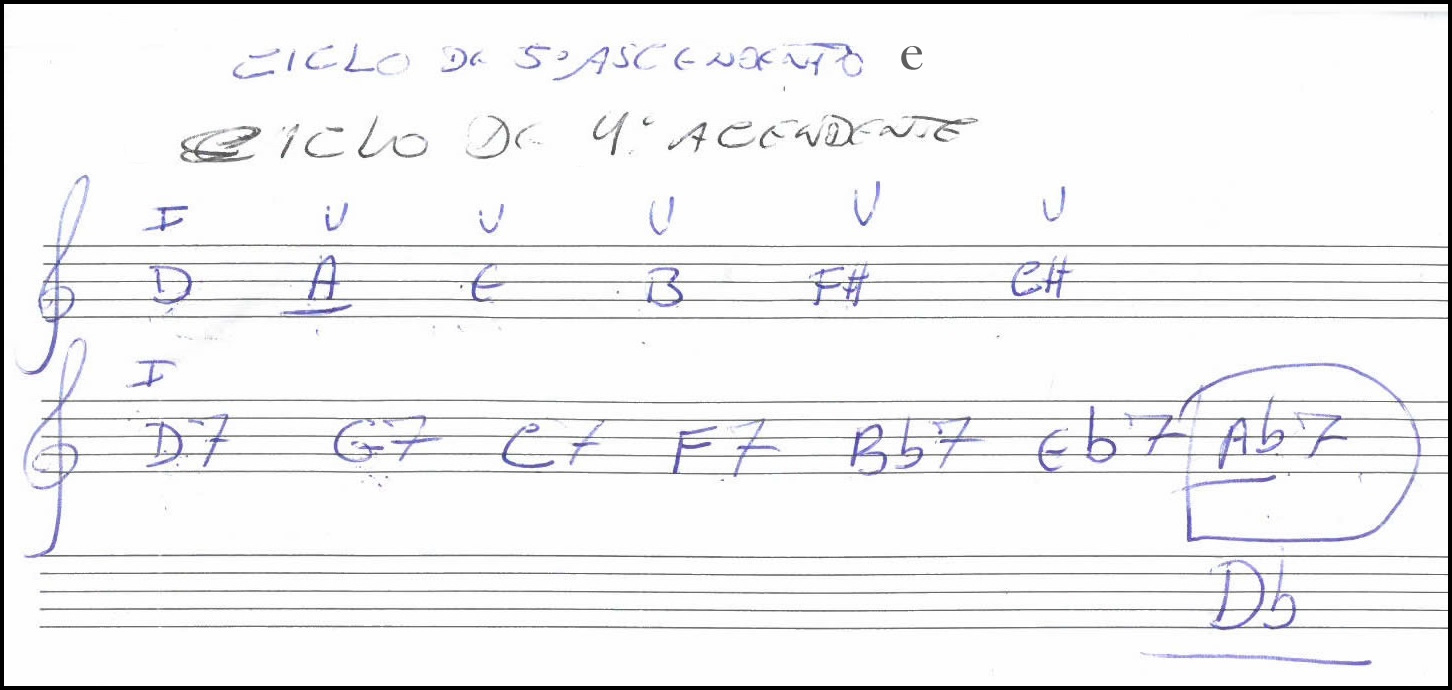 CICLO DE 5º ASCENDENTO e
CICLO DE 4º ACENDENTE
I V V V V V
D A E B F# C#
I
D7 G7 C7 F7 Bb7 Eb7 Ab7
Db